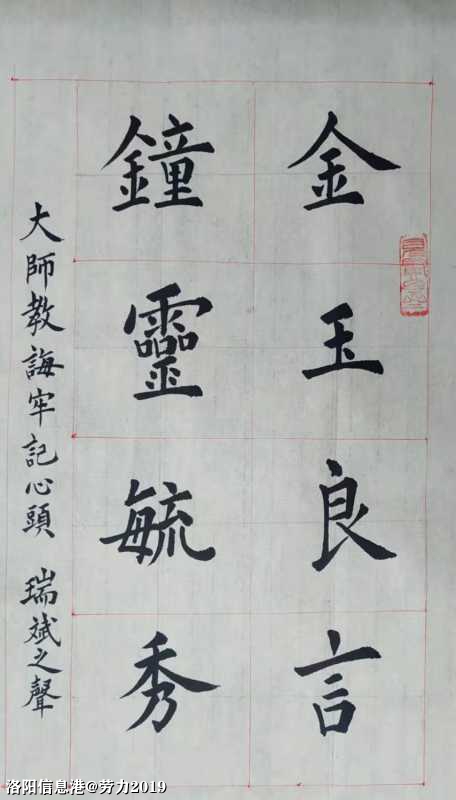 金玉良言
鐘靈毓秀
大師教誨牢記心頭 瑞斌之聲
洛阳信息港@劳力2019